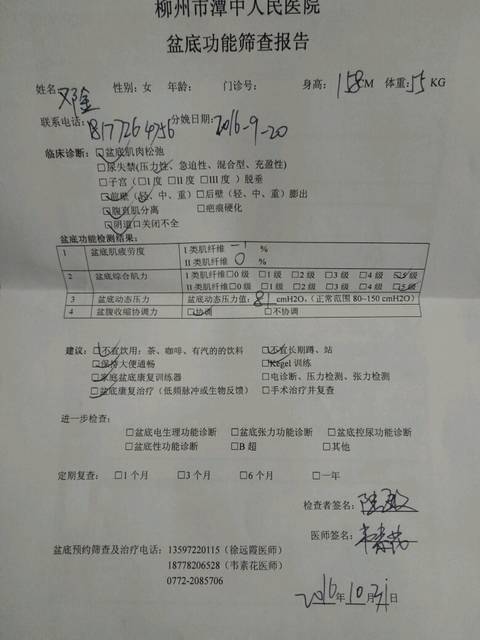 柳州市潭中人民医院
盆底功能筛查报告
姓名 邓金 性别：女 年龄： 门诊号： 身高：158CM 体重：55KG
联系电话：18177264756 分娩日期：2016-9-20
临床诊断：☑盆底肌肉松弛
□尿失禁(压力性、急迫性、混合型、充盈性)
□子宫（□I度 □II度 □III度）脱垂
☑前壁（轻、中、重）□后壁（轻、中、重）膨出
☑腹直肌分离 □疤痕硬化
☑阴道口关闭不全
盆底功能检测结果：
1 盆底肌疲劳度 I类肌纤维 -1 %
II类肌纤维 0 %
2 盆底综合肌力 I类肌纤维□0级 □1级 □2级 □3级 □4级 ☑5级
II类肌纤维□0级 □1级 □2级 □3级 □4级 ☑5级
3 盆底动态压力 盆底动态压力值：81 cmH2O，(正常范围80~150 cmH2O)
4 盆腹收缩协调力 ☑协调 □不协调
建议：☑不宜饮用：茶、咖啡、有汽的的饮料 ☑不宜长期蹲、站
☑保持大便通畅 ☑Kegel 训练
☑家庭盆底康复训练器 □电诊断、压力检测、张力检测
☑盆底康复治疗（低频脉冲或生物反馈） □手术治疗并复查
进一步检查：
□盆底电生理功能诊断 □盆底张力功能诊断 □盆底控尿功能诊断
□盆底性功能诊断 □B超 □其他
定期复查：□1个月 □3个月 □6个月 □一年
检查者签名：
医师签名：
盆底预约筛查及治疗电话：13597220115（徐远霞医师）
18778206528（韦素花医师）
0772-2085706
2016年10月31日